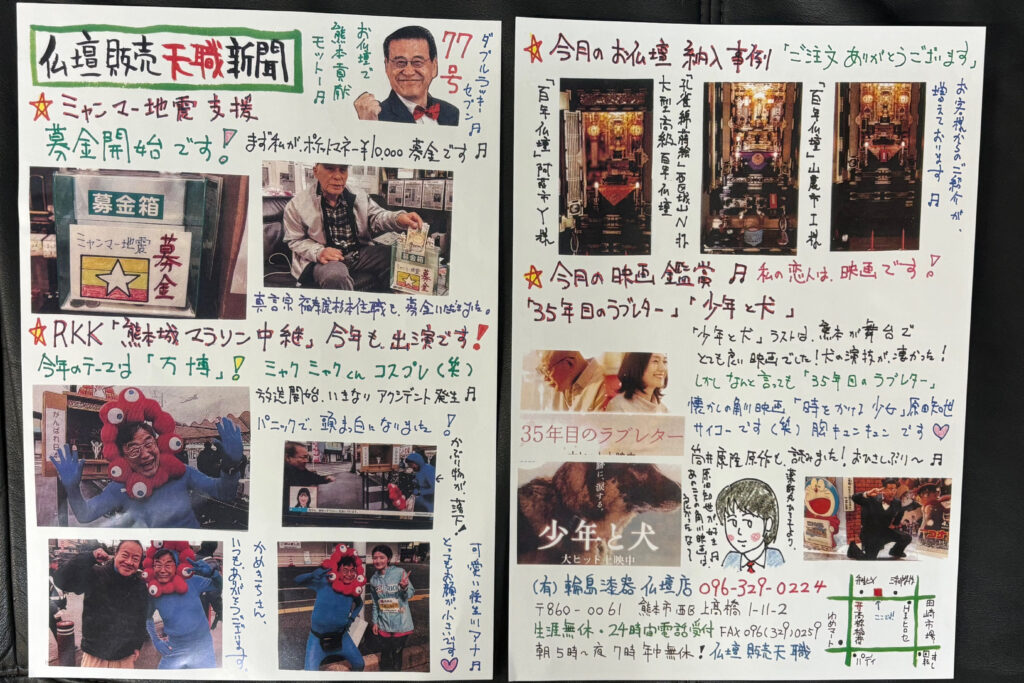 仏壇販売天職新聞
お仏壇で
熊本貢献
モットー♬
77号
ダブルラッキーセブン♬
☆ミャンマー地震支援
募金開始です!
まず私が、ポケットマネー¥10,000募金です♬
募金箱
ミャンマー地震
募金
募金箱
真言宗 福寿院杉本住職も、募金いただきました。
☆RKK「熊本城マラソン中継」今年も、出演です!
今年のテーマは「万博」! ミャクミャクくん コスプレ(笑)
放送開始、いきなり アクシデント発生♬
パニックで、頭まっ白になりました!
かぶり物が、落下!
がんばれ
かめきちさん、
いつもありがとうございます。
可愛い怪生川アナ♬
とってもお顔が小さいです
☆今月のお仏壇 納入事例「ご注文ありがとうございます」
お客様からのご紹介が、
増えております♬
「百年仏壇」山鹿市I様
「孔雀蒔絵」西区城山N様
大型高級百年仏壇
「百年仏壇」阿蘇市Y様
☆今月の映画鑑賞♬ 私の恋人は、映画です!
「35年目のラブレター」「少年と犬」
「少年と犬」ラストは、熊本が舞台で
とても良い映画でした!犬の演技が、凄かった!
しかしなんと言っても「35年目のラブレター」
懐かしの角川映画、「時をかける少女」原田知世
サイコーです(笑)胸キュンキュンです
筒井康隆原作も、読みました!おひさしぶり〜♬
35年目のラブレター
大ヒット上映中
少年と犬
大ヒット上映中
薬師丸ひろ子より、
原田知世が、好き♬
あのころの角川映画は、
(有)輪島漆器仏壇店 096-329-0224
〒860-0061 熊本市西区上高橋1-11-2
生涯無休・24時間電話受付 FAX096(329)0259
朝5時〜夜7時 年中無休!仏壇販売天職
田崎市場
ここだよ
ゆめマート